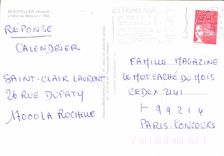 MONTPELLIER (Hérault)
REPONSE
CALENDRIER
SAINT-CLAIR LAURENT
26 RUE DUPATY
17000 LA ROCHELLE
FAMILLE MAGAZINE
LE MOT CACHÉ DU MOIS
CEDEX 2141
99214
PARIS-CONCOURS